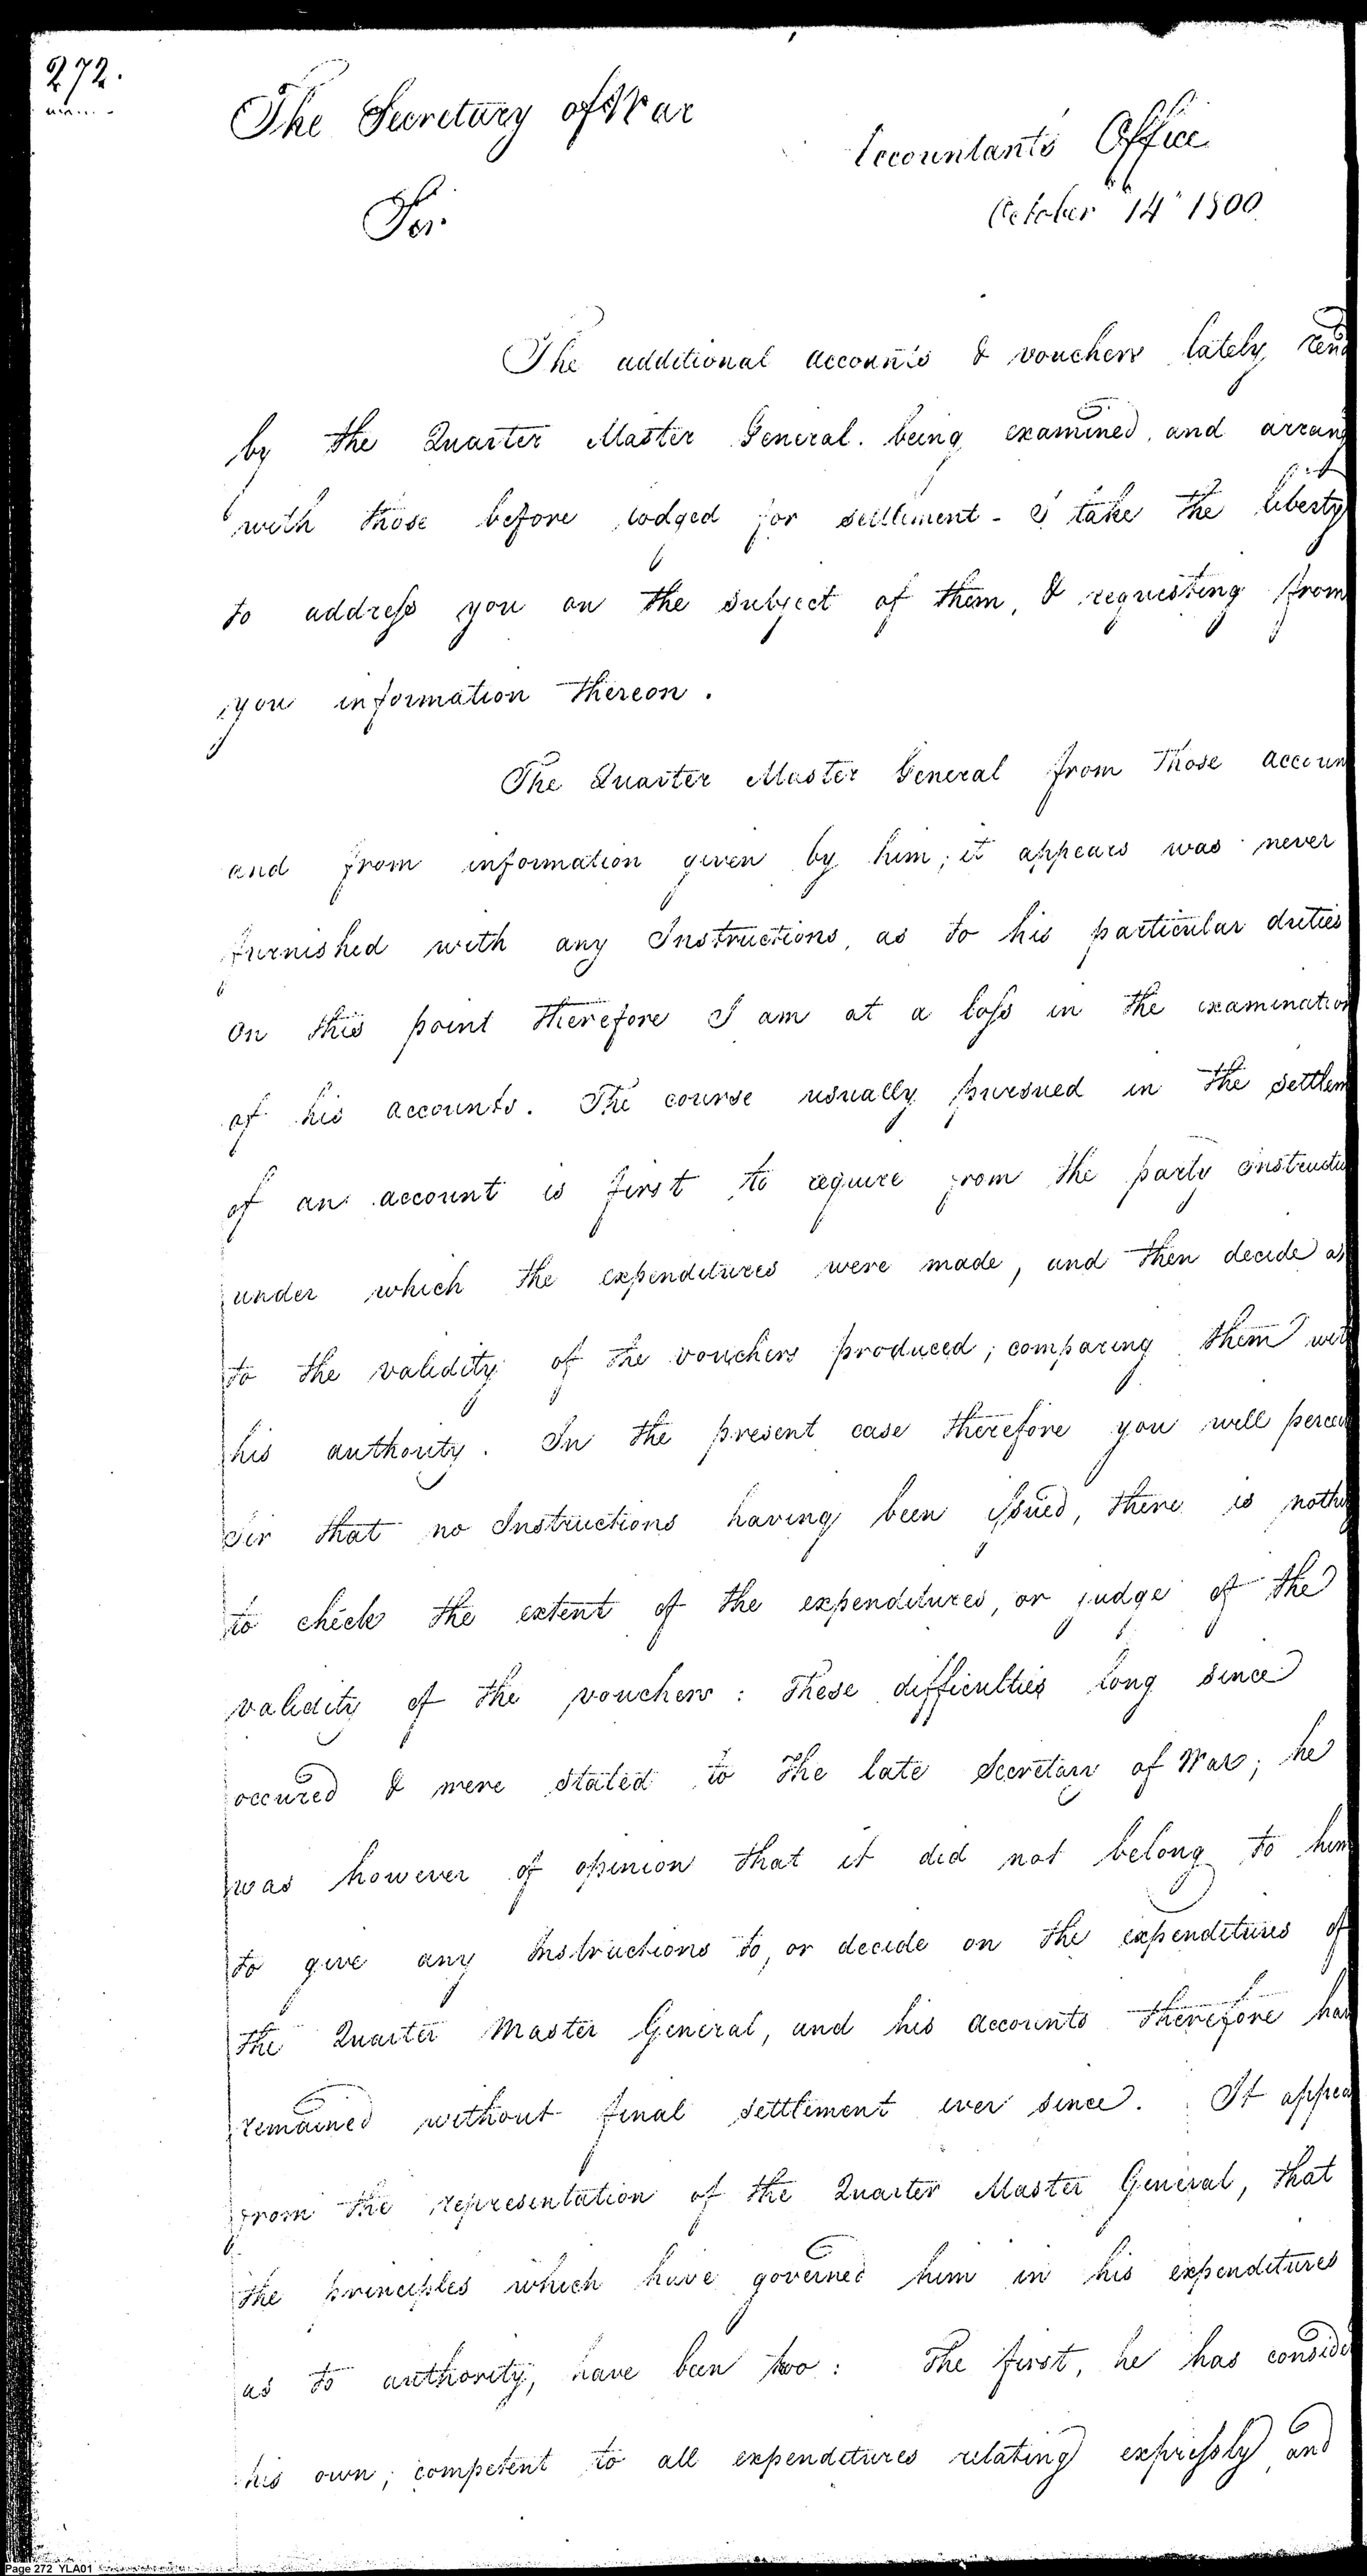 272.
The Secretary of War
Accountants Office
October 14th 1800
Sir.
The additional accounts & vouchers lately rend
by the Quarter Master General. being examined, and arrang
with those before lodged for settlement - I take the liberty
to address you on the subject of them, & requesting from
you information thereon.
The Quarter Master General from those accoun
and from information given by him; it appears was never
furnished with any Instructions, as to his particular duties
on this point therefore I am at a loss in the examination
of his accounts. The course usually pursued in the settlem
of an account is first to require from the party instructio
under which the expenditures were made, and then decide as
to the validity of the vouchers produced; comparing them wit
his authority. In the present case therefore you will percei
Sir that no Instructions having been issued, there is nothing
to check the extent of the expenditures, or judge of the
validity of the vouchers: These difficulties long since
occured & were stated to the late Secretary of War; he
was however of opinion that it did not belong to him
to give any Instructions to, or decide on the expenditures of
the Quarter Master General, and his accounts therefore hav
remained without final settlement ever since. It appea
from the representation of the Quarter Master General, that
the principles which have governed him in his expenditures
as to authority, have been two: The first, he has conside
his own; competent to all expenditures relating expressly and
Page 272 YLA01